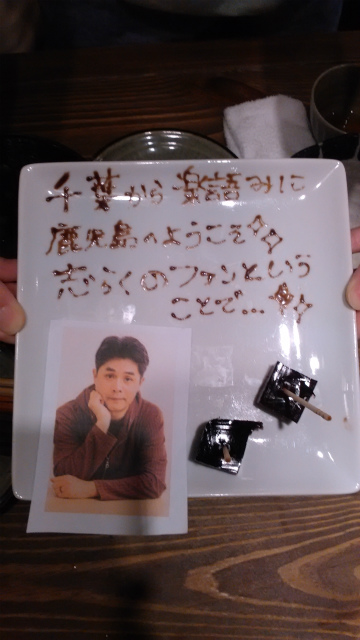 千葉から 楽語みに
鹿児島へようこそ
志らくのファンという
ことで…